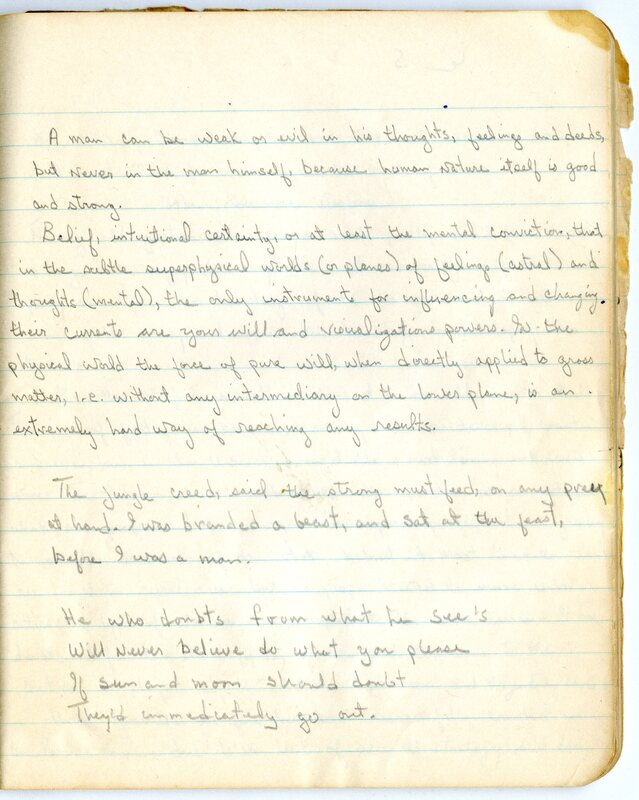 A man can be weak or evil in his thoughts, feelings and deeds,
but never in the man himself, because human nature itself is good
and strong.
Belief, intuitional certainty, or at least the mental conviction, that
in the subtle superphysical worlds (or planes) of feelings (astral) and
thoughts (mental), the only instruments for influencing and changing
their currents are your will and visualizations powers. In the
physical world the force of pure will, when directly applied to gross
matter, i.e. without any intermediary on the lower plane, is an
extremely hard way of reaching any results.
The jungle creed, said the strong must feed, on any prey
at hand. I was branded a beast, and sat at the feast,
before I was a man.
He who doubts from what he see's
Will never believe do what you please
If sun and moon should doubt
They'd immediately go out.